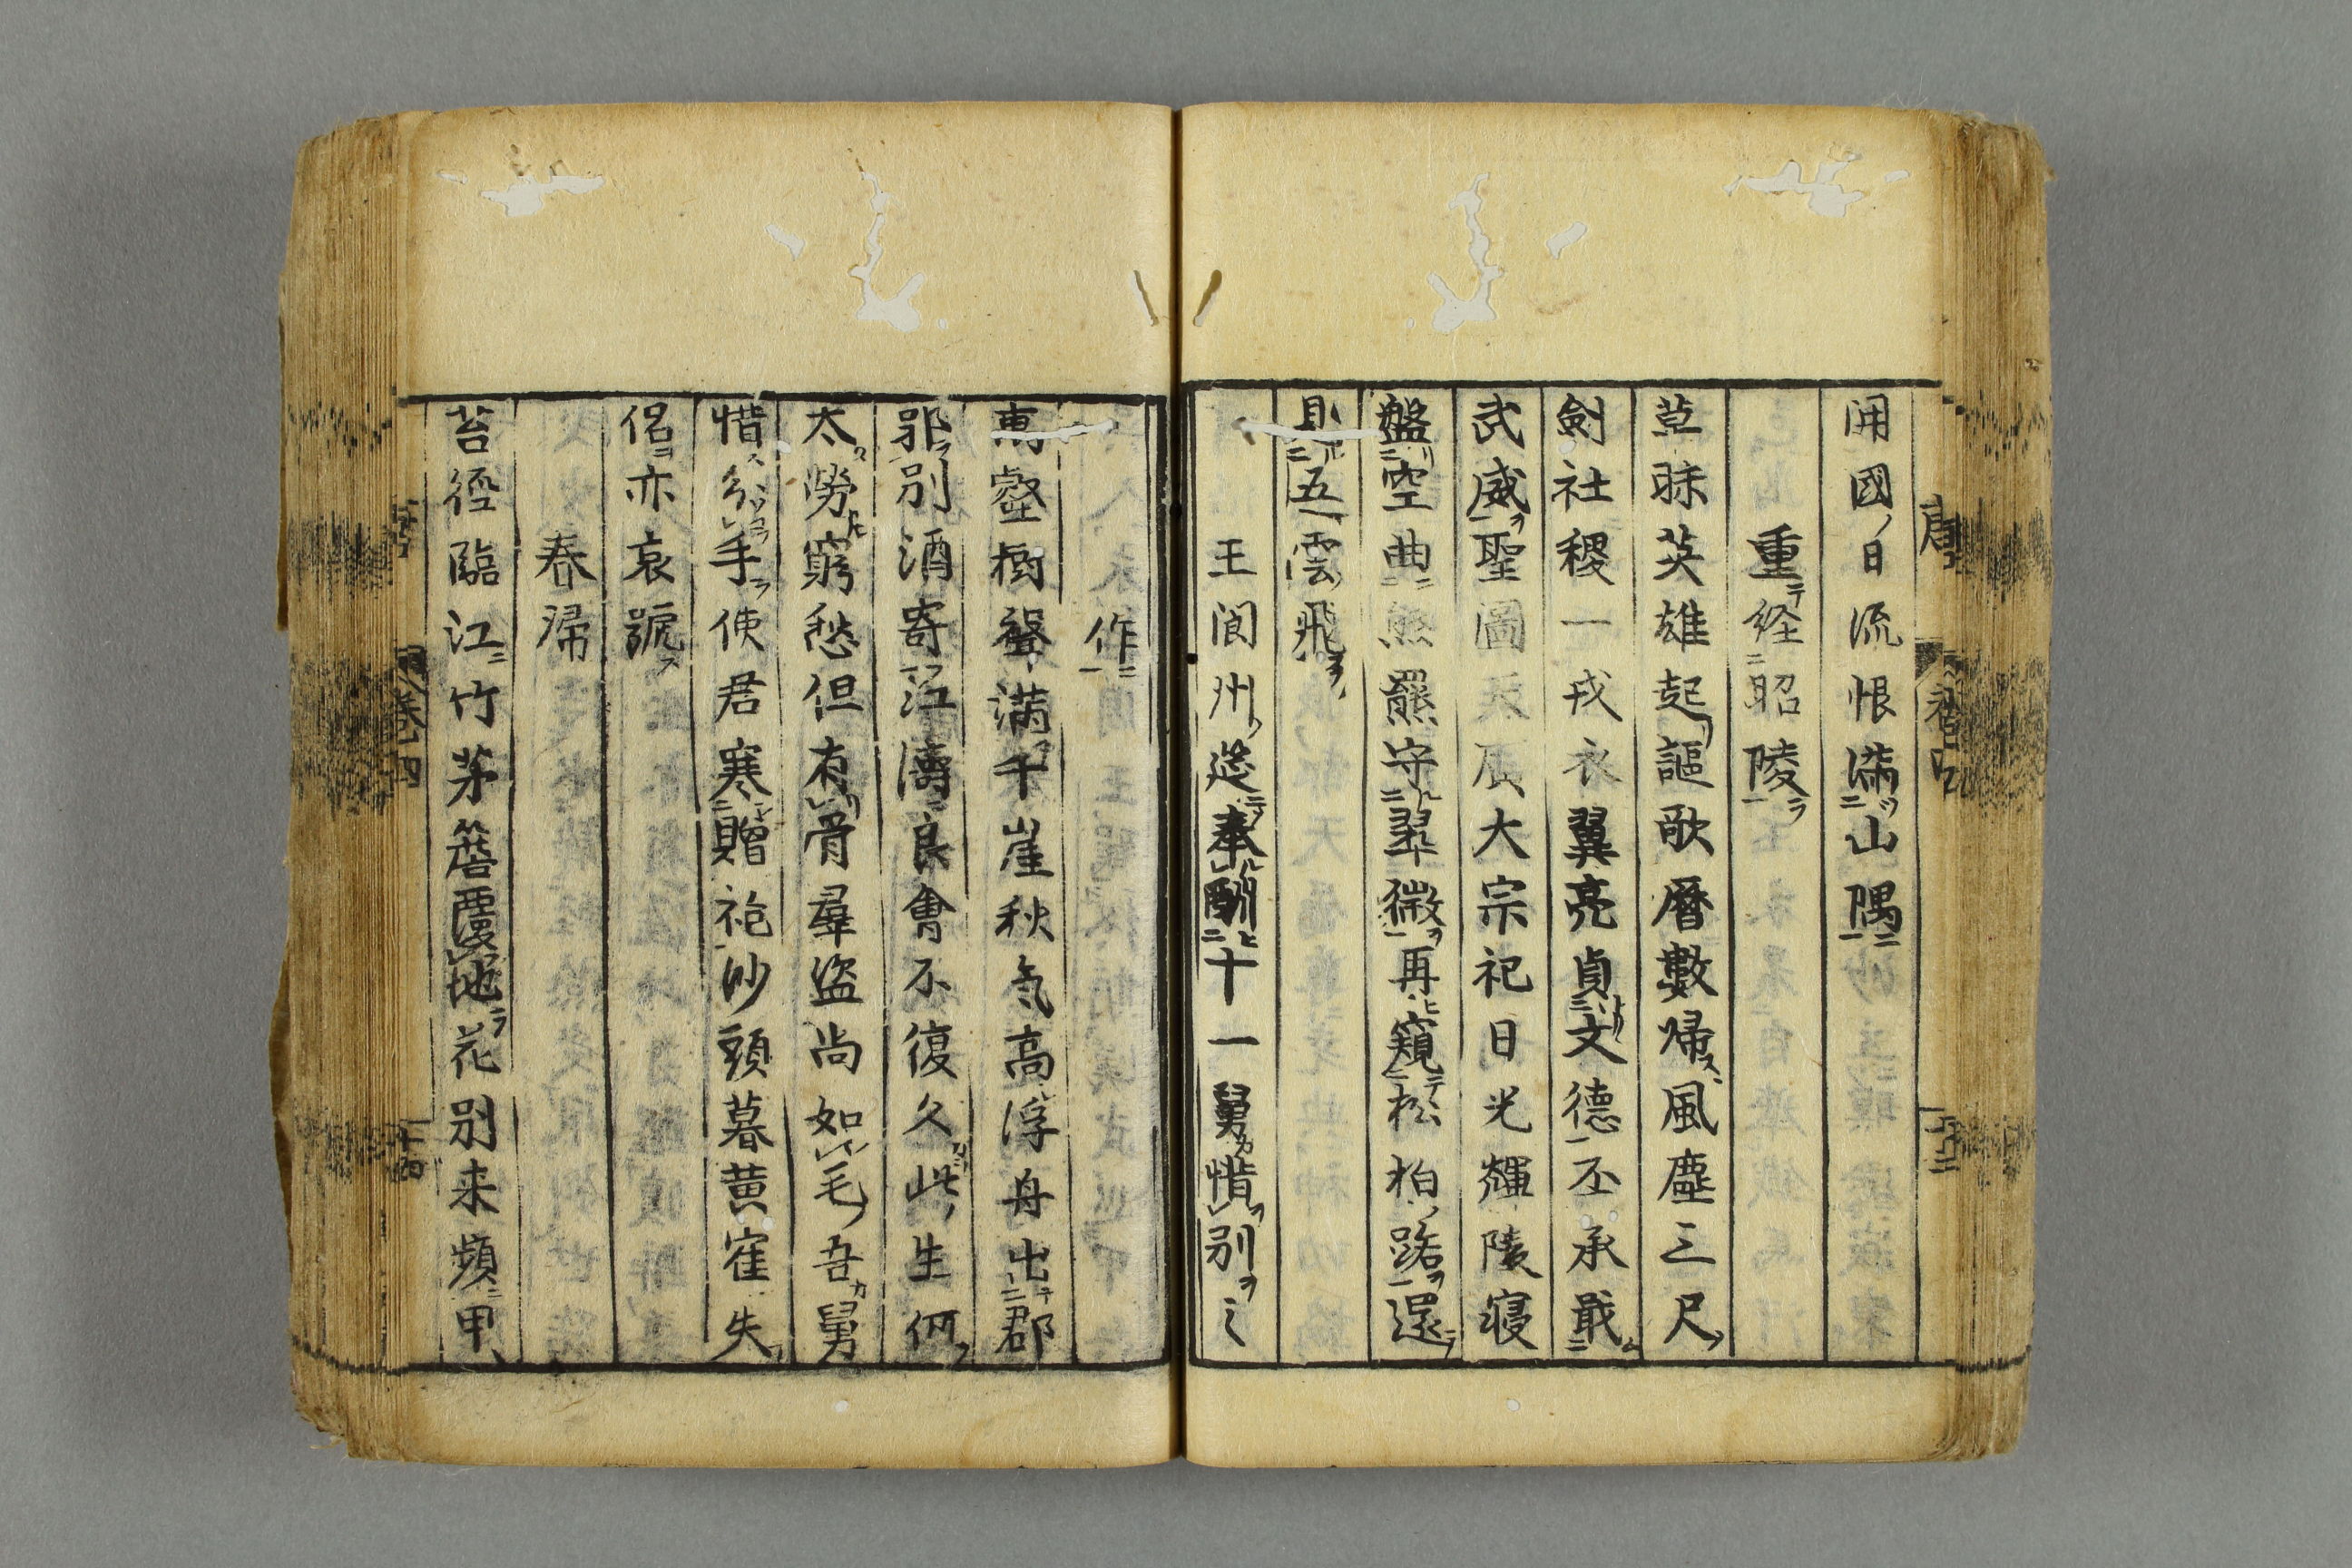 開國日流恨滿山隅
重経昭陵
草昧英雄起謳歌曆數帰風塵三尺
剣社稷一戎衣翼亮貞文德丕承戢
武威聖圖天廣大宗祀日光輝陵寝
盤空曲熊羆守翠微再窺松柏路還
見五雲飛
王閬州筵奉酬十一舅惜別之
作
萬壑樹聲満千崖秋気高浮舟出郡
郭別酒寄江濤良會不復久此生何
太勞窮愁但有骨羣盗尚如毛吾舅
惜分手使君寒贈袍沙頭暮黄崔失
侶亦哀號
春帰
苔徑臨江竹茅簷覆地花別来頻甲